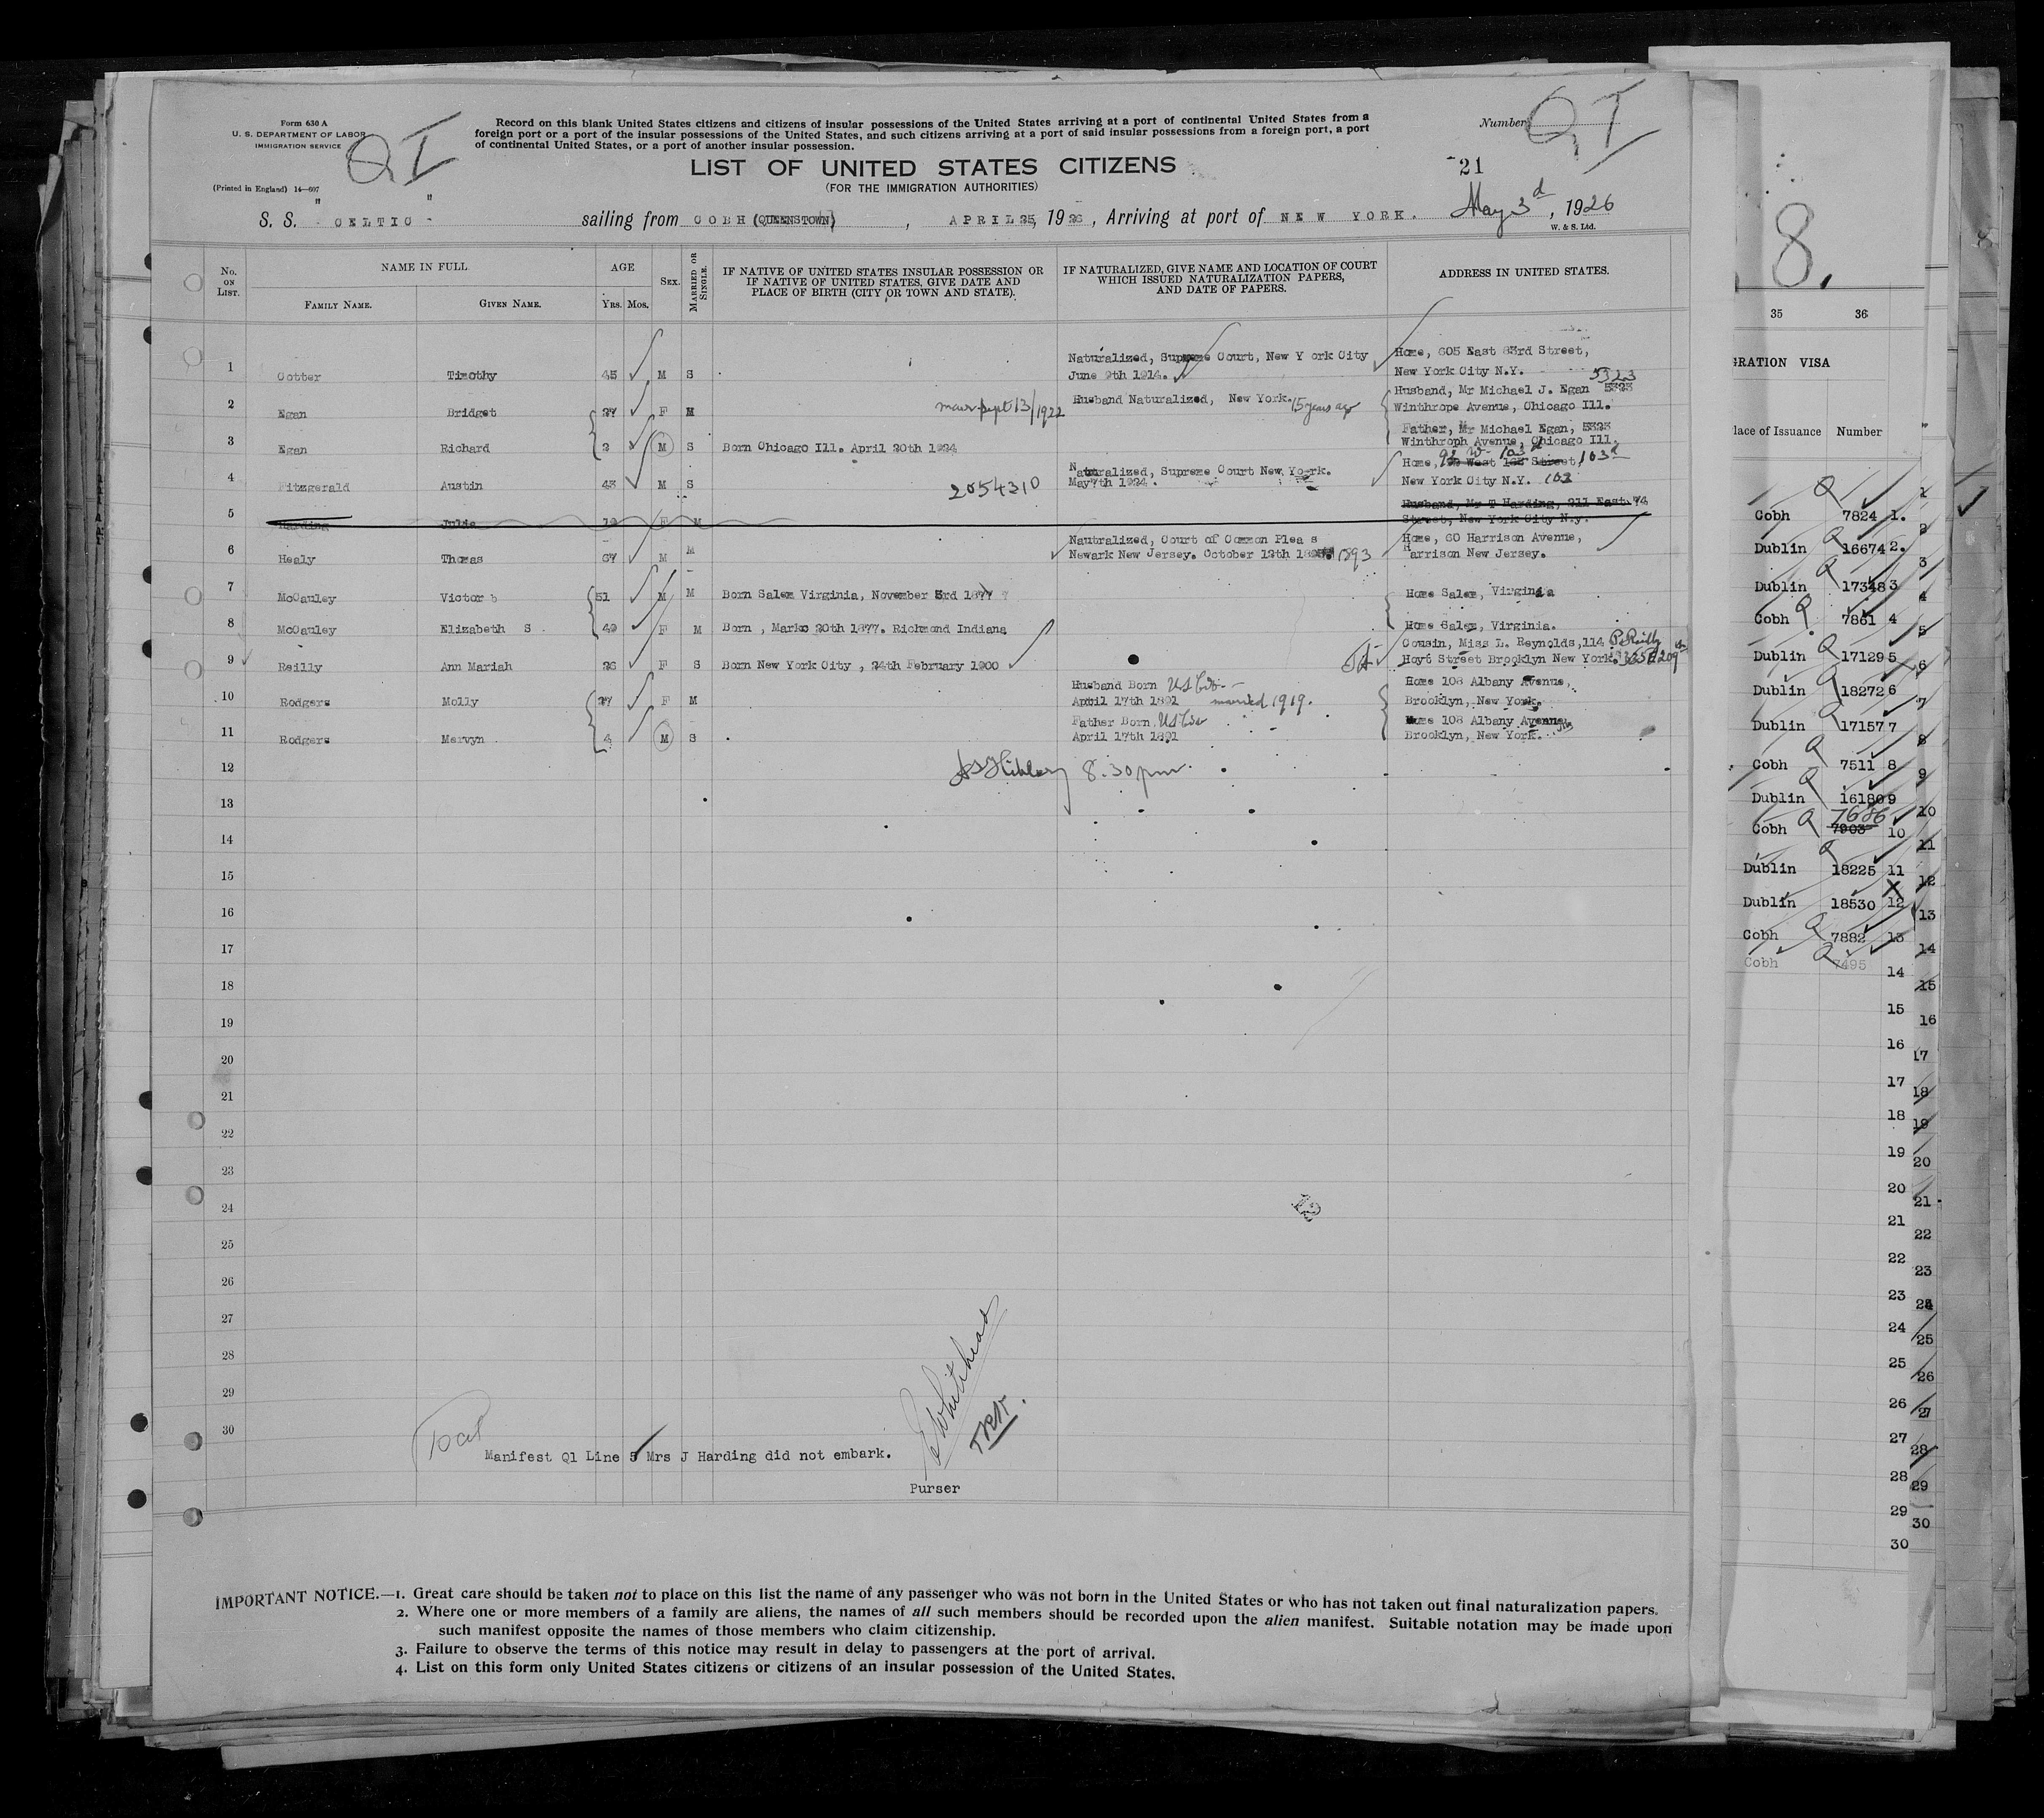 Form 630 A
U. S. DEPARTMENT OF LABOR
IMMIGRATION SERVICE
QI
(Printed in England) 14—607
Record on this blank United States citizens and citizens of insular possessions of the United States arriving at a port of continental United States from a
foreign port or a port of the insular possessions of the United States, and such citizens arriving at a port of said insular possessions from a foreign port, a port
of continental United States, or a port of another insular possession.
Number QI
LIST OF UNITED STATES CITIZENS
(FOR THE IMMIGRATION AUTHORITIES)
21
S. S. " CELTIC " sailing from COBH (QUEENSTOWN), APRIL 25, 1926, Arriving at port of NEW YORK. May 3d, 1926
W. & S. Ltd.
No. ON LIST.
NAME IN FULL
FAMILY NAME. GIVEN NAME.
AGE
YRS. MOS.
SEX.
MARRIED OR SINGLE.
IF NATIVE OF UNITED STATES INSULAR POSSESSION OR
IF NATIVE OF UNITED STATES, GIVE DATE AND
PLACE OF BIRTH (CITY OR TOWN AND STATE).
IF NATURALIZED, GIVE NAME AND LOCATION OF COURT
WHICH ISSUED NATURALIZATION PAPERS,
AND DATE OF PAPERS.
ADDRESS IN UNITED STATES.
1 Cotter Timothy 45 M S Naturalized, Supreme Court, New Y ork City
June 9th 1914. Home, 605 East 83rd Street,
New York City N.Y.
2 Egan Bridget 27 F M marr Sept 13/1922 Husband Naturalized, New York. 15 years ago Husband, Mr Michael J. Egan 5323
Winthrope Avenue, Chicago Ill.
3 Egan Richard 2 M S Born Chicago Ill. April 20th 1924 Father, Mr Michael Egan, 5323
Winthroph Avenue, Chicago Ill.
4 Fitzgerald Austin 43 M S 2054310 Naturalized, Supreme Court New Yo-rk.
May 7th 1924. Home, West Street, 103d
New York City N.Y. 103
5 Harding Julia 19 F M Husband, Mr T Harding, 211 East 74
Street, New York City N.y.
6 Healy Thomas 67 M M Nautralized, Court of Common Plea s
Newark New Jersey. October 12th 1893 Home, 60 Harrison Avenue,
Harrison New Jersey.
7 McCauley Victor b 51 M M Born Salem Virginia, November 3rd 187 Home Salem, Virginia
8 McCauley Elizabeth S 49 F M Born , Marko 20th 1877. Richmond Indiana Home Salem, Virginia.
9 Reilly Ann Mariah 26 F S Born New York City , 24th February 1900 Cousin, Miss L. Reynolds,114 P. Reilly
Hoyt Street Brooklyn New York. 365 E 209 St
10 Rodgers Molly 27 F M Husband Born US Citz.
April 17th 1891 married 1919. Home 108 Albany Avenue,
Brooklyn, New York.
11 Rodgers Mervyn 4 M S Father Born US Citz
April 17th 1891 Home 108 Albany Avenue
Brooklyn, New York.
12 8.30 pm.
13
14
15
16
17
18
19
20
21
22
23
24
25
26
27
28
29
30
12
Manifest Q1 Line 5 Mrs J Harding did not embark.
E Whitehead
Purser
IMPORTANT NOTICE.—1. Great care should be taken not to place on this list the name of any passenger who was not born in the United States or who has not taken out final naturalization papers.
2. Where one or more members of a family are aliens, the names of all such members should be recorded upon the alien manifest. Suitable notation may be made upon
such manifest opposite the names of those members who claim citizenship.
3. Failure to observe the terms of this notice may result in delay to passengers at the port of arrival.
4. List on this form only United States citizens or citizens of an insular possession of the United States.
8.
35 36
GRATION VISA
lace of Issuance Number
Cobh 7824 1.
Dublin 16674 2.
Dublin 17348 3
Cobh 7861 4
Dublin 17129 5
Dublin 18272 6
Dublin 17157 7
Cobh 7511 8
Dublin 16180 9
7686
Cobh 7903 10
Dublin 18225 11
Dublin 18530 12
Cobh 7882 13
Cobh 7495 14
15
16
17
18
19
20
21
22
23
24
25
26
27
28
29
30
1
2
3
4
5
6
7
8
9
10
11
12
13
14
15
16
17
18
19
20
21
22
23
24
25
26
27
28
29
30